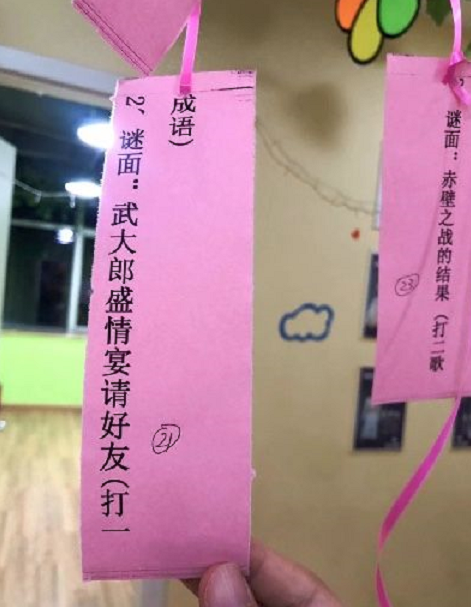 2、谜面：武大郎盛情宴请好友（打一
成语）
21
谜面：赤壁之战的结果（打二歌
23